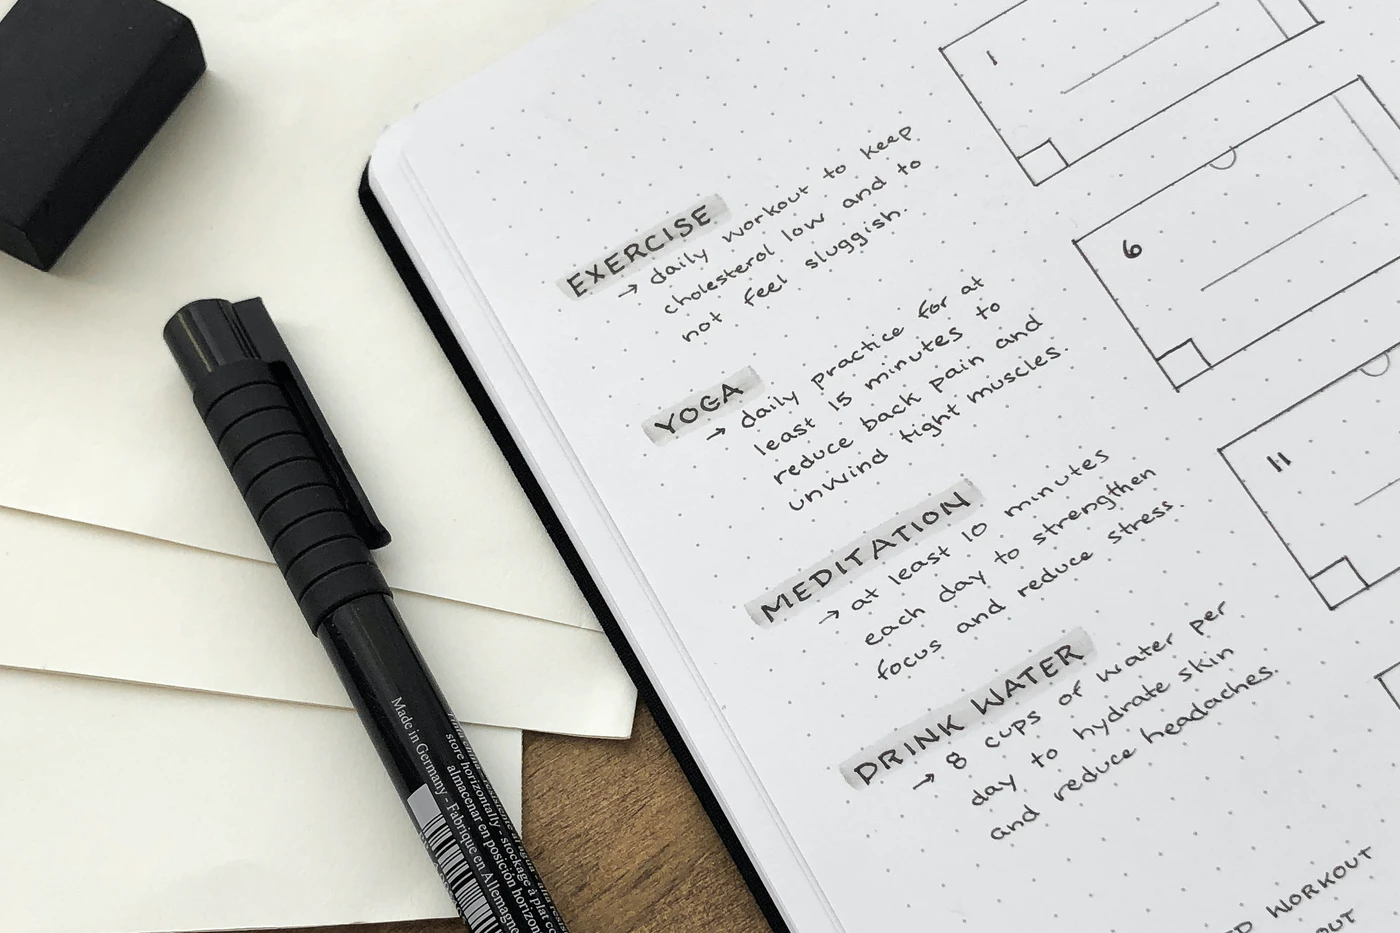 EXERCISE
→ daily workout to keep
cholesterol low and to
not feel sluggish.
YOGA
→ daily practice for at
least 15 minutes to
reduce back pain and
unwind tight muscles.
MEDITATION
→ at least 10 minutes
each day to strengthen
focus and reduce stress.
DRINK WATER
→ 8 cups of water per
day to hydrate skin
and reduce headaches.
WORKOUT
1
6
11
Made in Germany - Fabrique en Allemagne
almacenar en posición
store horizontally - stockage à plat